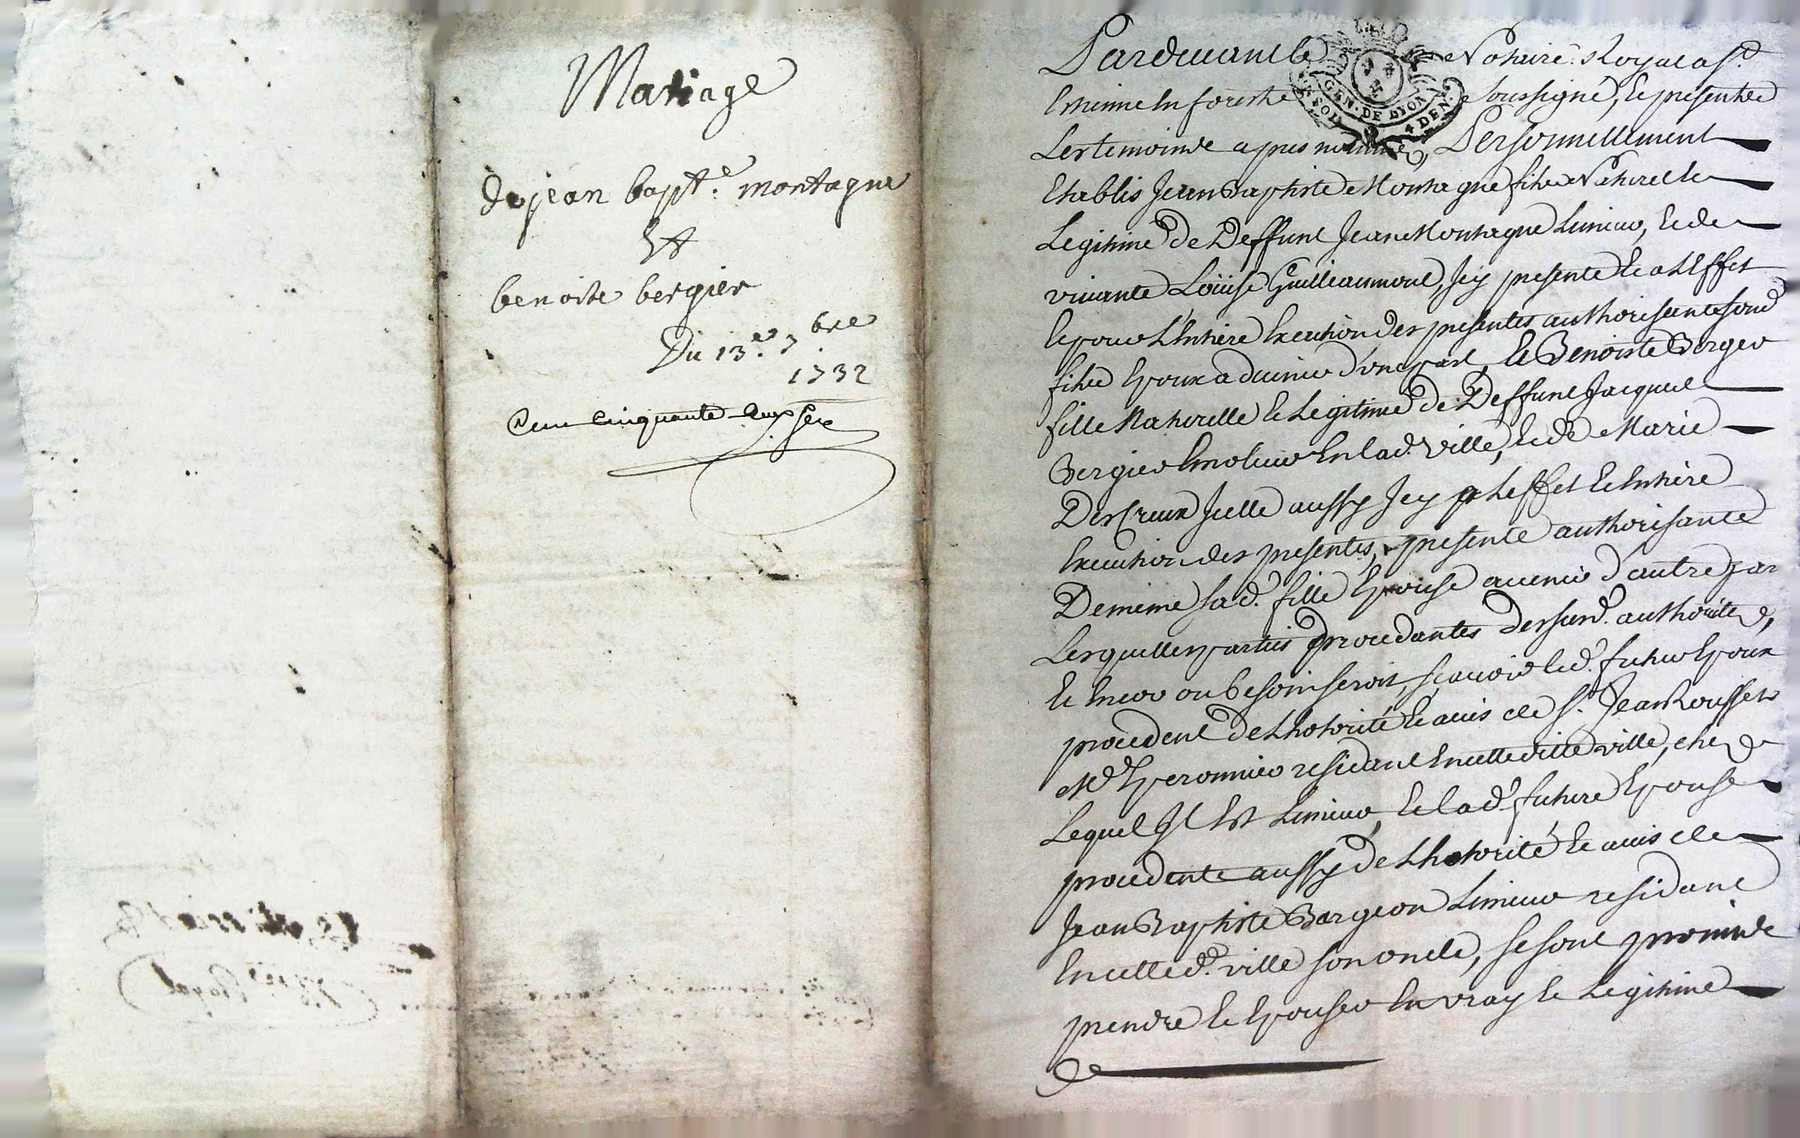 Mariage
de jean bapt.e montagne
Et
benoite bergier
Du 13.e 7 bre
1732
Cent cinquante deux
Pardevant le Notaire Royal a St
Estienne en forest soussigné, et presents
Les temoins apres nommés, Personnellement
Establis Jean Baptiste Montagne fils Naturel et
Legitime de Deffunt Jean Montagne Limeur, et de
vivante Loüise Guilleaumont, Jcy presente et a L'Effet
et pour L'Entiere Execution des presentes authorisante sond
fils Epoux advenir d'une part, et Benoiste Bergier
fille Naturelle et Legitime de Deffunt Jacques
Bergier Emoleur En lad. ville, et de Marie
Descreux Jcelle aussy Jcy pr Leffet et Entiere
Execution des presentes, presente authorisante
De meme sad. fille Epouse avenir d'autre par
Lesquelles parties procedantes des susd. authorités,
et Encor ou besoin seroit, sçavoir led. futur Epoux
procedent de Lhotorité et avis de Sr. Jean Rousset
Md Eperonnier residant En cette ditte ville, chez
Lequel Jl Est Limeur, et lad. future Epouse
procedente aussy de Lhotorité et avis de
Jean Baptiste Bargeon Limeur residant
En cette d. ville son oncle, se sont promis de
prendre et Epouser En vray et Legitime
GEN. DE LYON
SOL
4 DEN.